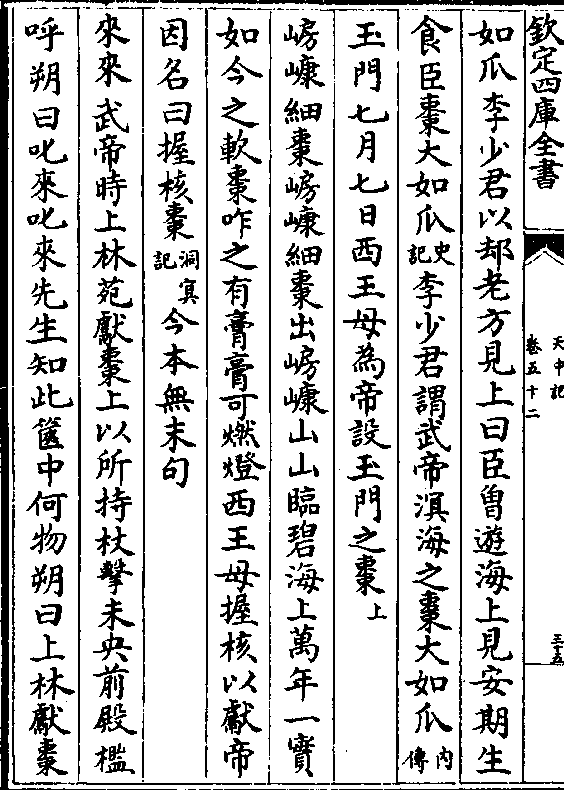 欽定四庫全書
天中記
卷五十二
三十五
如瓜李少君以却老方見上曰臣曾遊海上見安期生
食臣棗大如瓜史記李少君謂武帝溟海之棗大如瓜内傳
玉門七月七日西王母為帝設玉門之棗上
㟍嵻細棗㟍嵻細棗出㟍嵻山山臨碧海上萬年一實
如今之軟棗咋之有膏膏可燃燈西王母握核以獻帝
因名曰握核棗洞冥記今本無末句
來來武帝時上林苑獻棗上以所持杖擊未央前殿檻
呼朔曰叱來叱來先生知此篋中何物朔曰上林獻棗